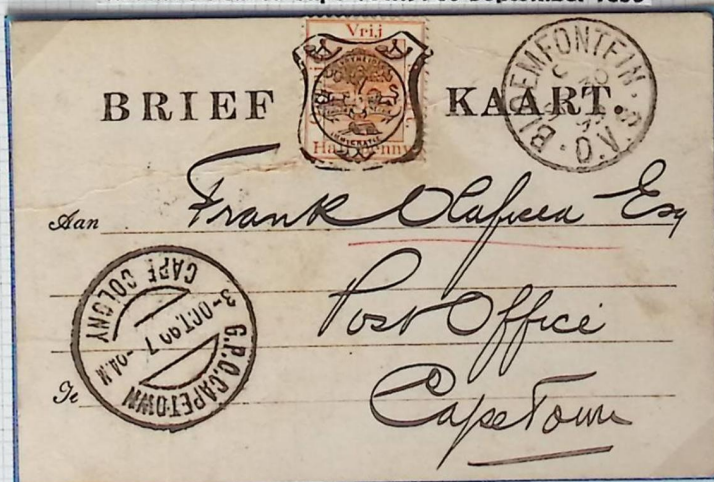 Vrij
BRIEF KAART.
Half Penny
BLOEMFONTEIN. O.V.S.
Aan Frank Esq
Post Office
Te Cape Town
G.P.O. CAPETOWN
3-OCT.99.7
CAPE COLONY